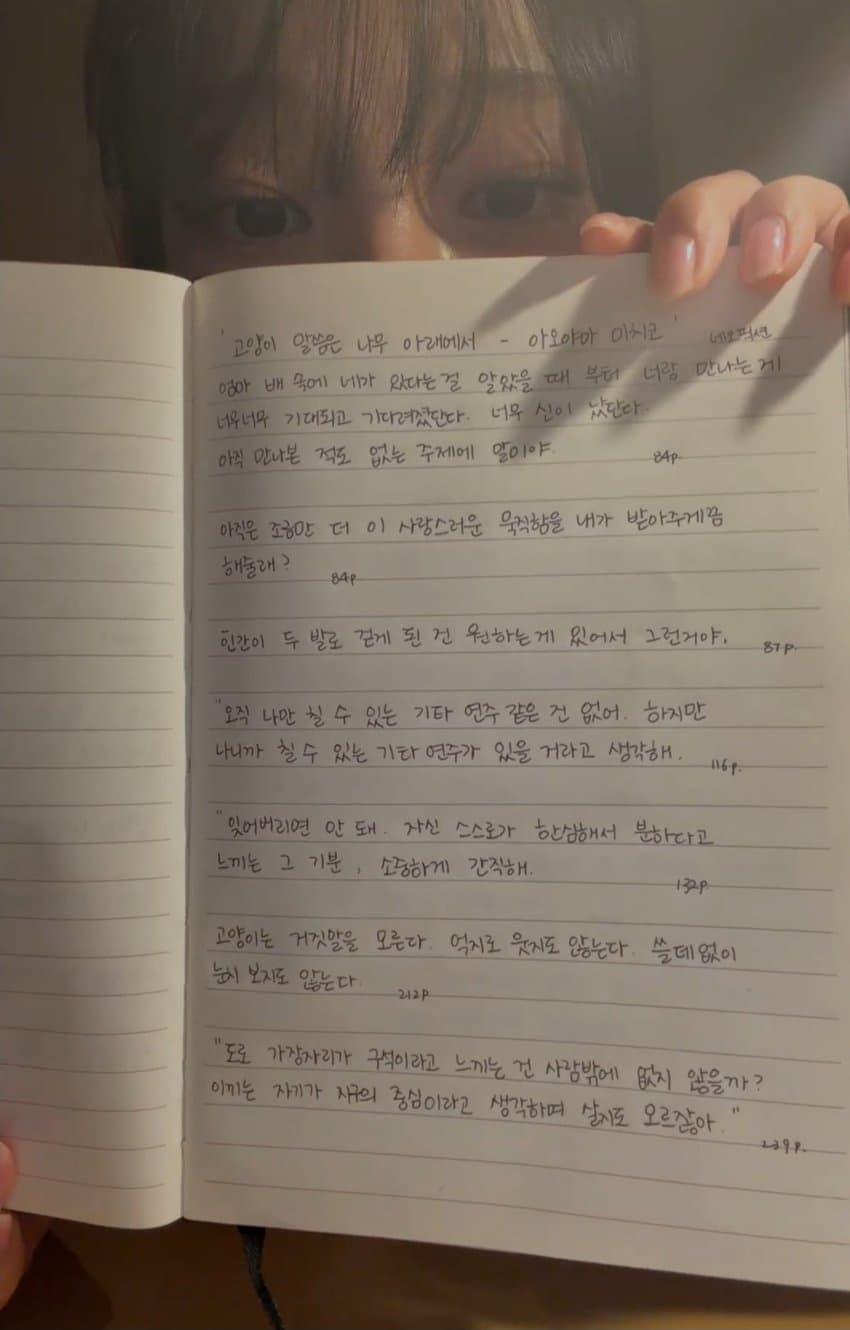 '고양이 말씀은 나무 아래에서 - 아오야마 미치코' 네오픽션
엄마 배 속에 네가 있다는걸 알았을 때 부터 너랑 만나는게
너무너무 기대되고 기다려졌단다. 너무 신이 났단다.
아직 만나본 적도 없는 주제에 말이야. 84p.
아직은 조금만 더 이 사랑스러운 묵직함을 내가 받아주게끔
해줄래? 84p
인간이 두 발로 걷게 된 건 원하는게 있어서 그런거야. 87p.
"오직 나만 칠 수 있는 기타 연주 같은 건 없어. 하지만
나니까 칠 수 있는 기타 연주가 있을 거라고 생각해. 116p.
"잊어버리면 안 돼. 자신 스스로가 한심해서 분하다고
느끼는 그 기분, 소중하게 간직해. 132p
고양이는 거짓말을 모른다. 억지로 웃지도 않는다. 쓸데없이
눈치 보지도 않는다 212p
"도로 가장자리가 구석이라고 느끼는 건 사람밖에 없지 않을까?
이끼는 자기가 지구의 중심이라고 생각하며 살지도 모르잖아." 239p.